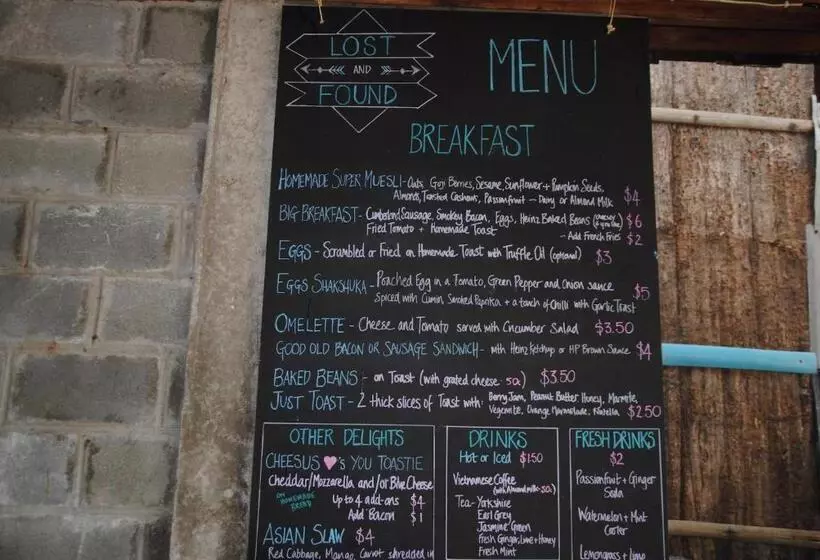 LOST
AND
FOUND
MENU
BREAKFAST
HOMEMADE SUPER MUESLI - Oats, Goji Berries, Sesame, Sunflower + Pumpkin Seeds,
Almonds, Toasted Cashews, Passionfruit - Dairy or Almond Milk $4
BIG BREAKFAST - Cumberland Sausage, Smokey Bacon, Eggs, Heinz Baked Beans $6
Fried Tomato + Homemade Toast - Add French Fries $2
EGGS - Scrambled or Fried on Homemade Toast with Truffle Oil (optional) $3
EGGS SHAKSHUKA - Poached Egg in a Tomato, Green Pepper and Onion sauce
Spiced with Cumin, Smoked Paprika + a touch of Chilli with Garlic Toast $5
OMELETTE - Cheese and Tomato served with Cucumber Salad $3.50
GOOD OLD BACON OR SAUSAGE SANDWICH - with Heinz Ketchup or HP Brown Sauce $4
BAKED BEANS - on Toast (with grated cheese 50c) $3.50
JUST TOAST - 2 thick slices of Toast with: Berry Jam, Peanut Butter, Honey, Marmite,
Vegemite, Orange Marmalade, Nutella $2.50
OTHER DELIGHTS
CHEESUS ♥'s YOU TOASTIE
Cheddar/Mozzarella and/or Blue Cheese
ON HOMEMADE BREAD
Up to 4 add-ons $4
Add Bacon $1
ASIAN SLAW $4
Red Cabbage, Mango, Carrot shredded in
DRINKS
Hot or Iced $1.50
Vietnamese Coffee
(with Almond milk - 50c)
Tea - Yorkshire
Earl Grey
Jasmine Green
Fresh Ginger, Lime + Honey
Fresh Mint
FRESH DRINKS
$2
Passionfruit + Ginger
Soda
Watermelon + Mint
Cooler
Lemongrass + Lime